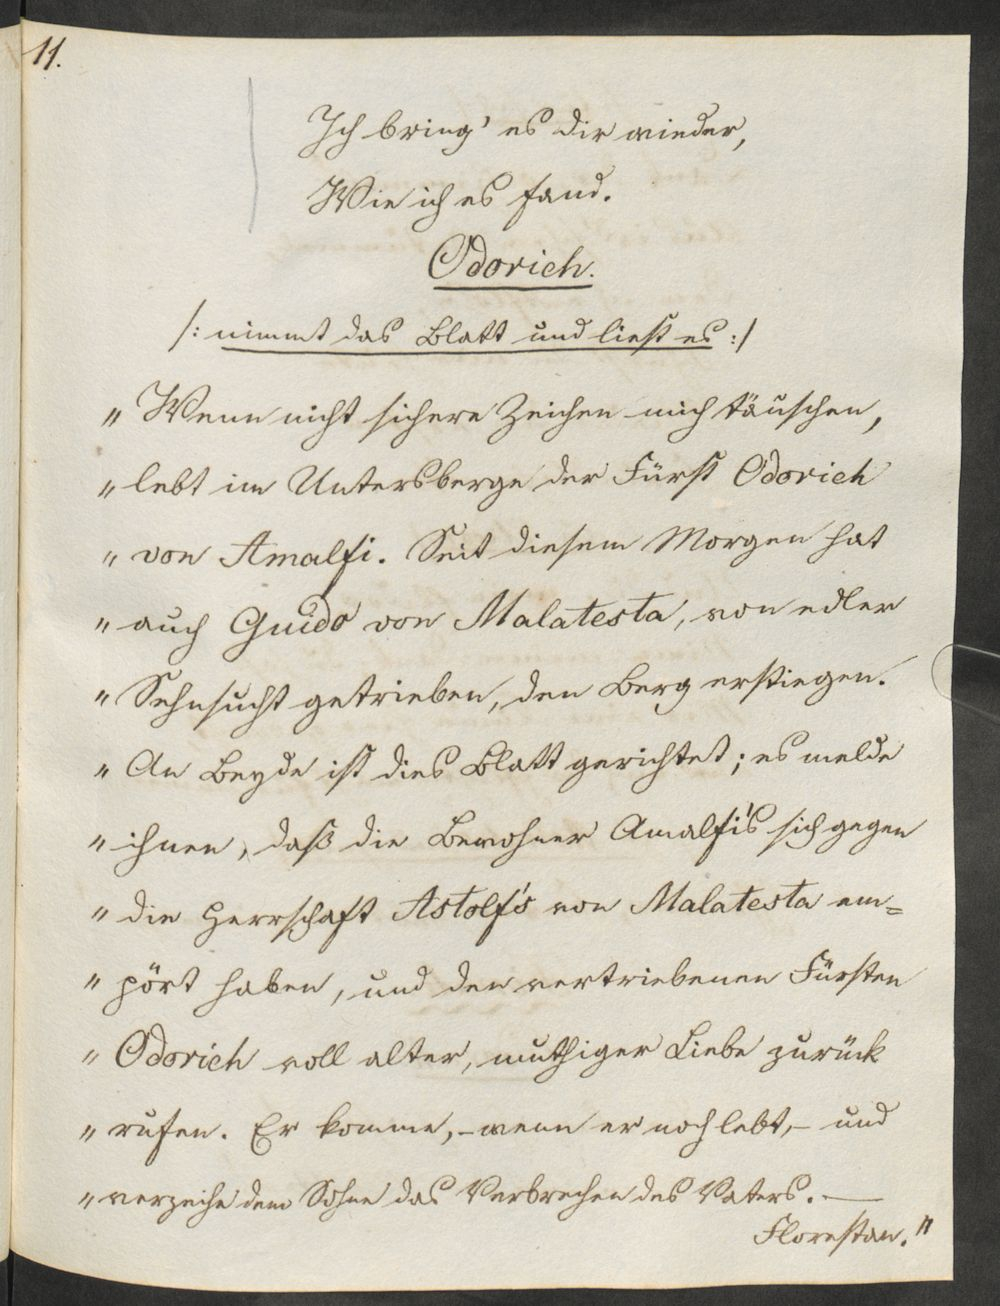 11.
Ich bring' es dir wieder,
Wie ich es fand.
Odorich.
/: nimmt das Blatt und liest es :/
„ Wenn nicht sichere Zeichen mich täuschen,
„ lebt im Untersberge der Fürst Odorich
„ von Amalfi. Seit diesem Morgen hat
„ auch Guido von Malatesta, von edler
„ Sehnsucht getrieben, den Berg erstiegen.
„ An Beyde ist dies Blatt gerichtet; es melde
„ ihnen, daß die Bewohner Amalfi's sich gegen
„ die Herrschaft Astolf's von Malatesta em=
„ pört haben, und den vertriebenen Fürsten
„ Odorich voll alter, muthiger Liebe zurück
„ rufen. Er komme, – wenn er noch lebt, – und
„ verzeihe dem Sohne das Verbrechen des Vaters. —
Florestan. "